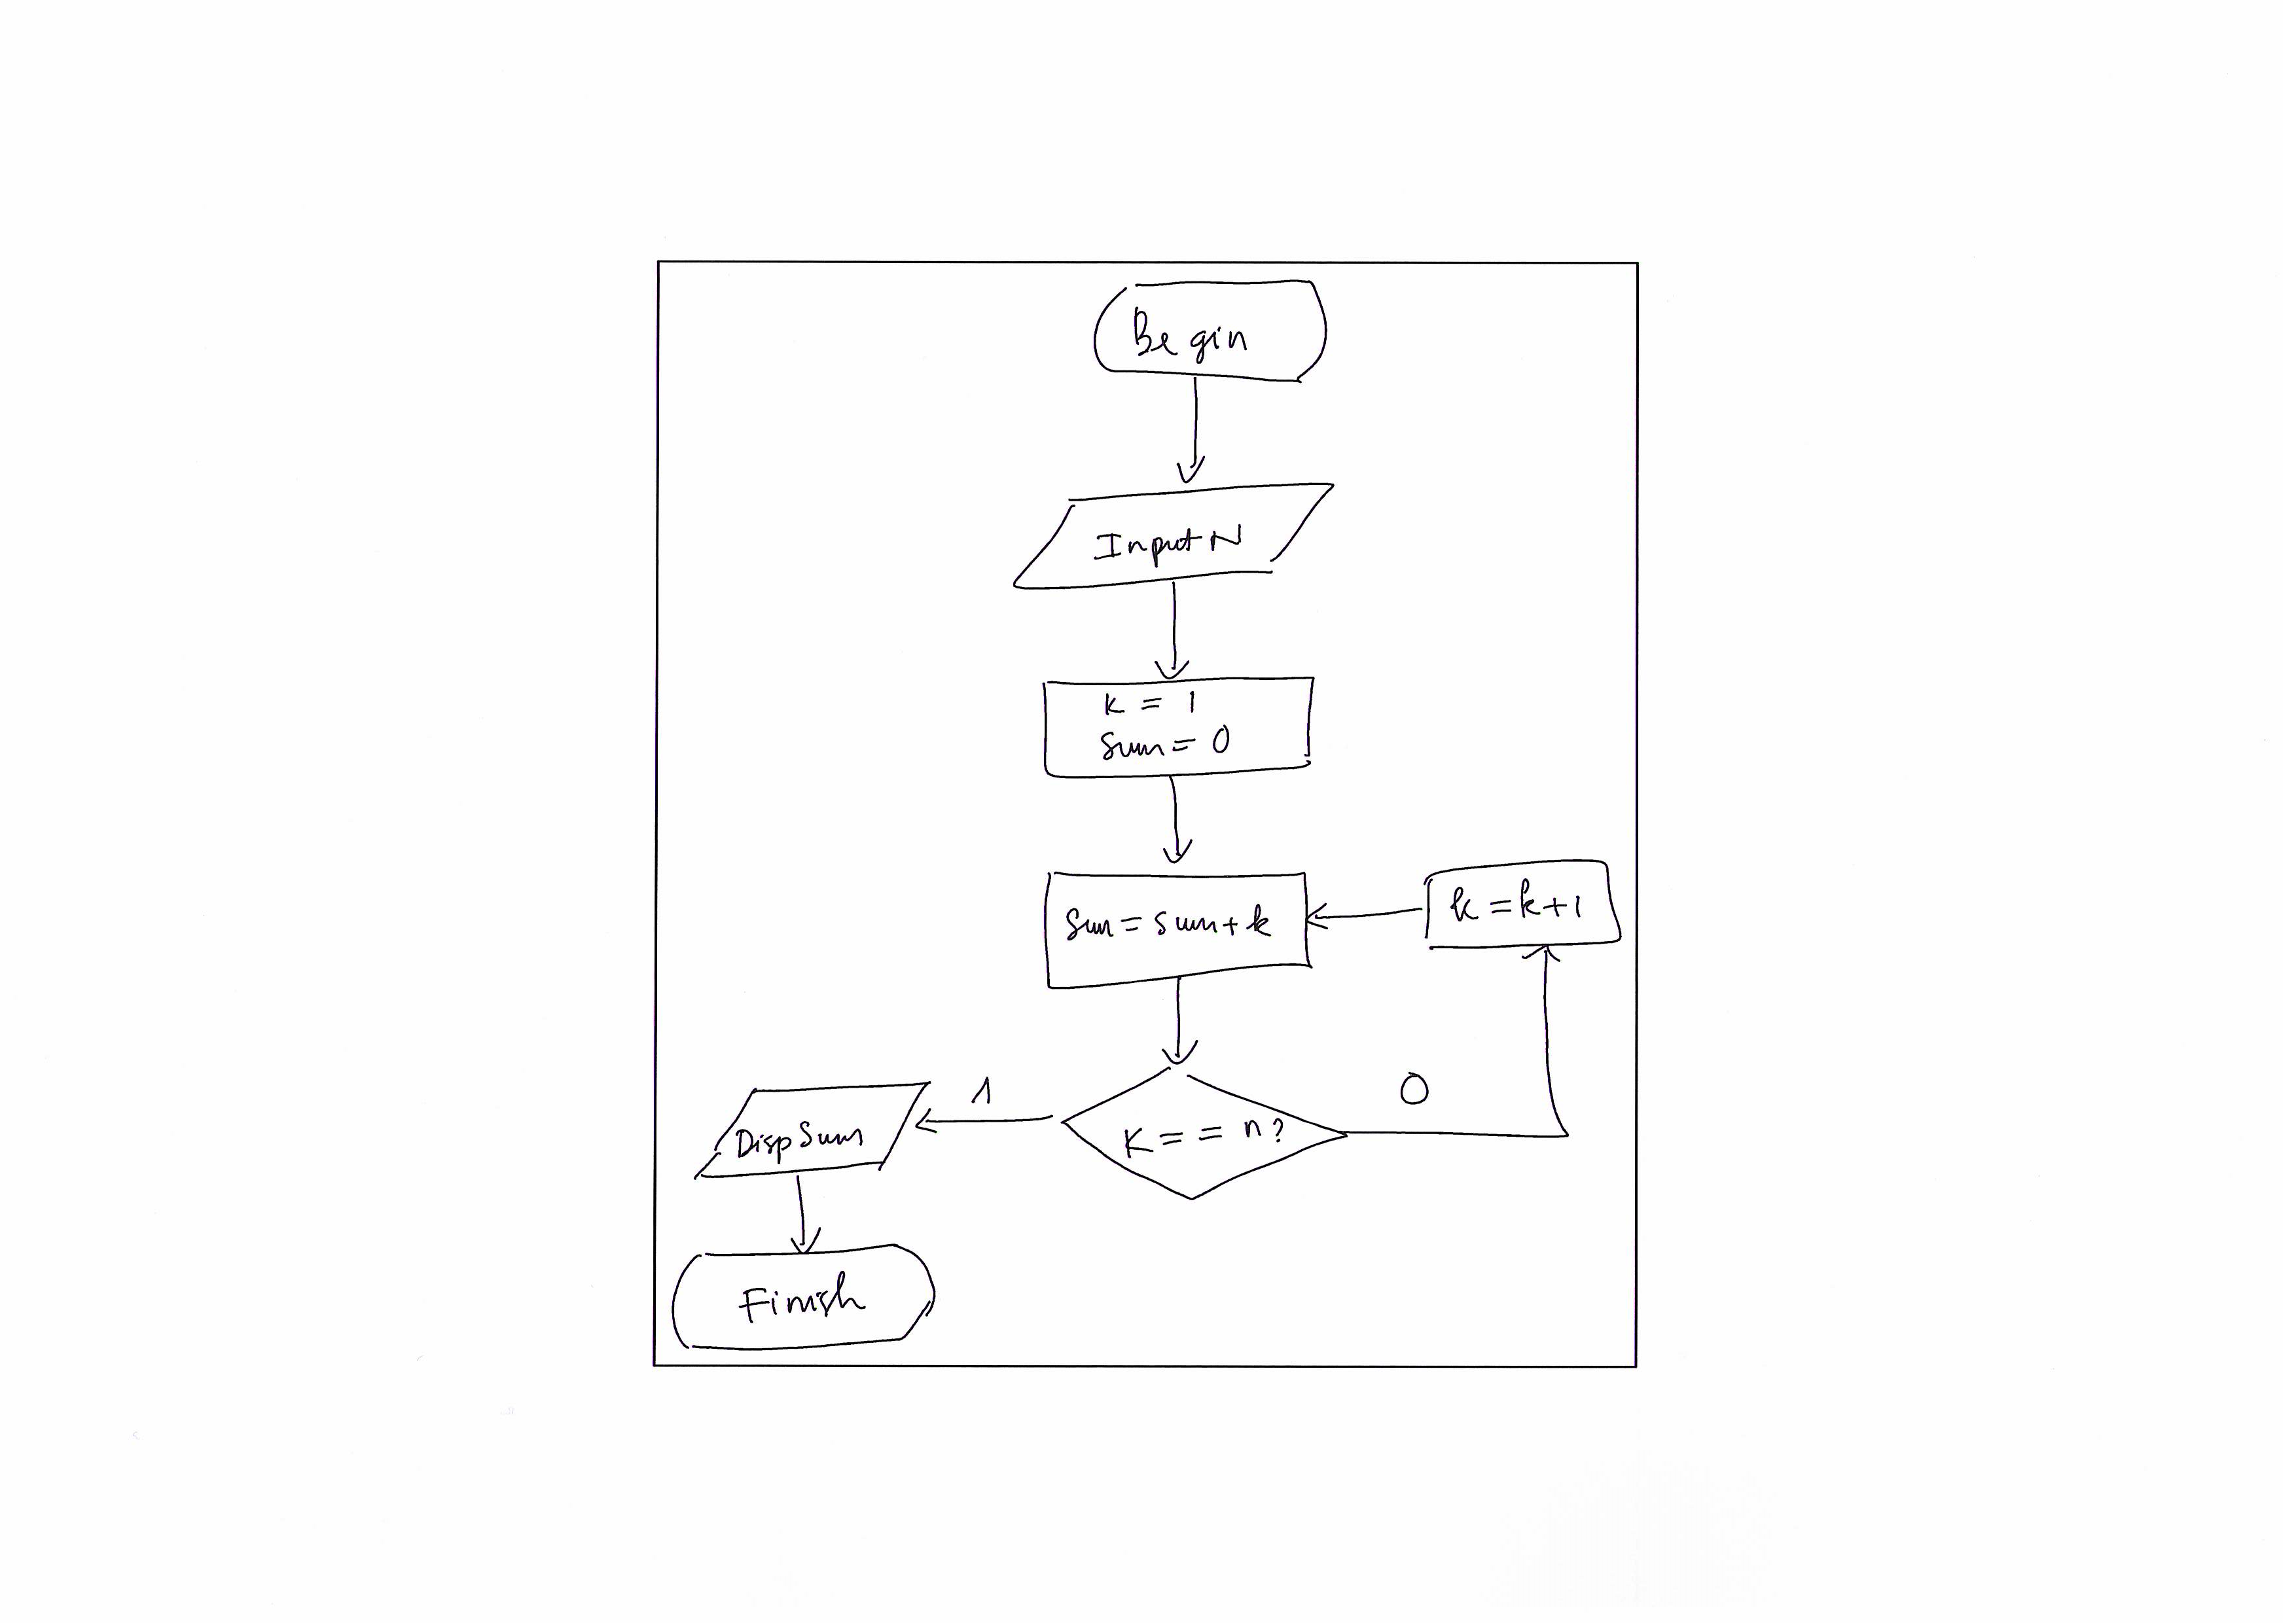 Begin
Input N
k = 1
sum = 0
sum = sum + k
k = k + 1
K = = n?
1
0
Disp Sum
Finish